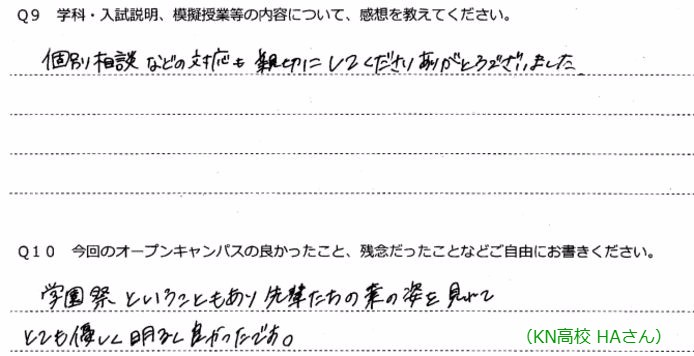 Q9　学科・入試説明、模擬授業等の内容について、感想を教えてください。
個別相談などの対応も親切にしてくださりありがとうございました
Q10　今回のオープンキャンパスの良かったこと、残念だったことなどご自由にお書きください。
学園祭ということもあり先輩たちの素の姿を見れて
とても優しく明るく良かったです。
（KN高校 HAさん）